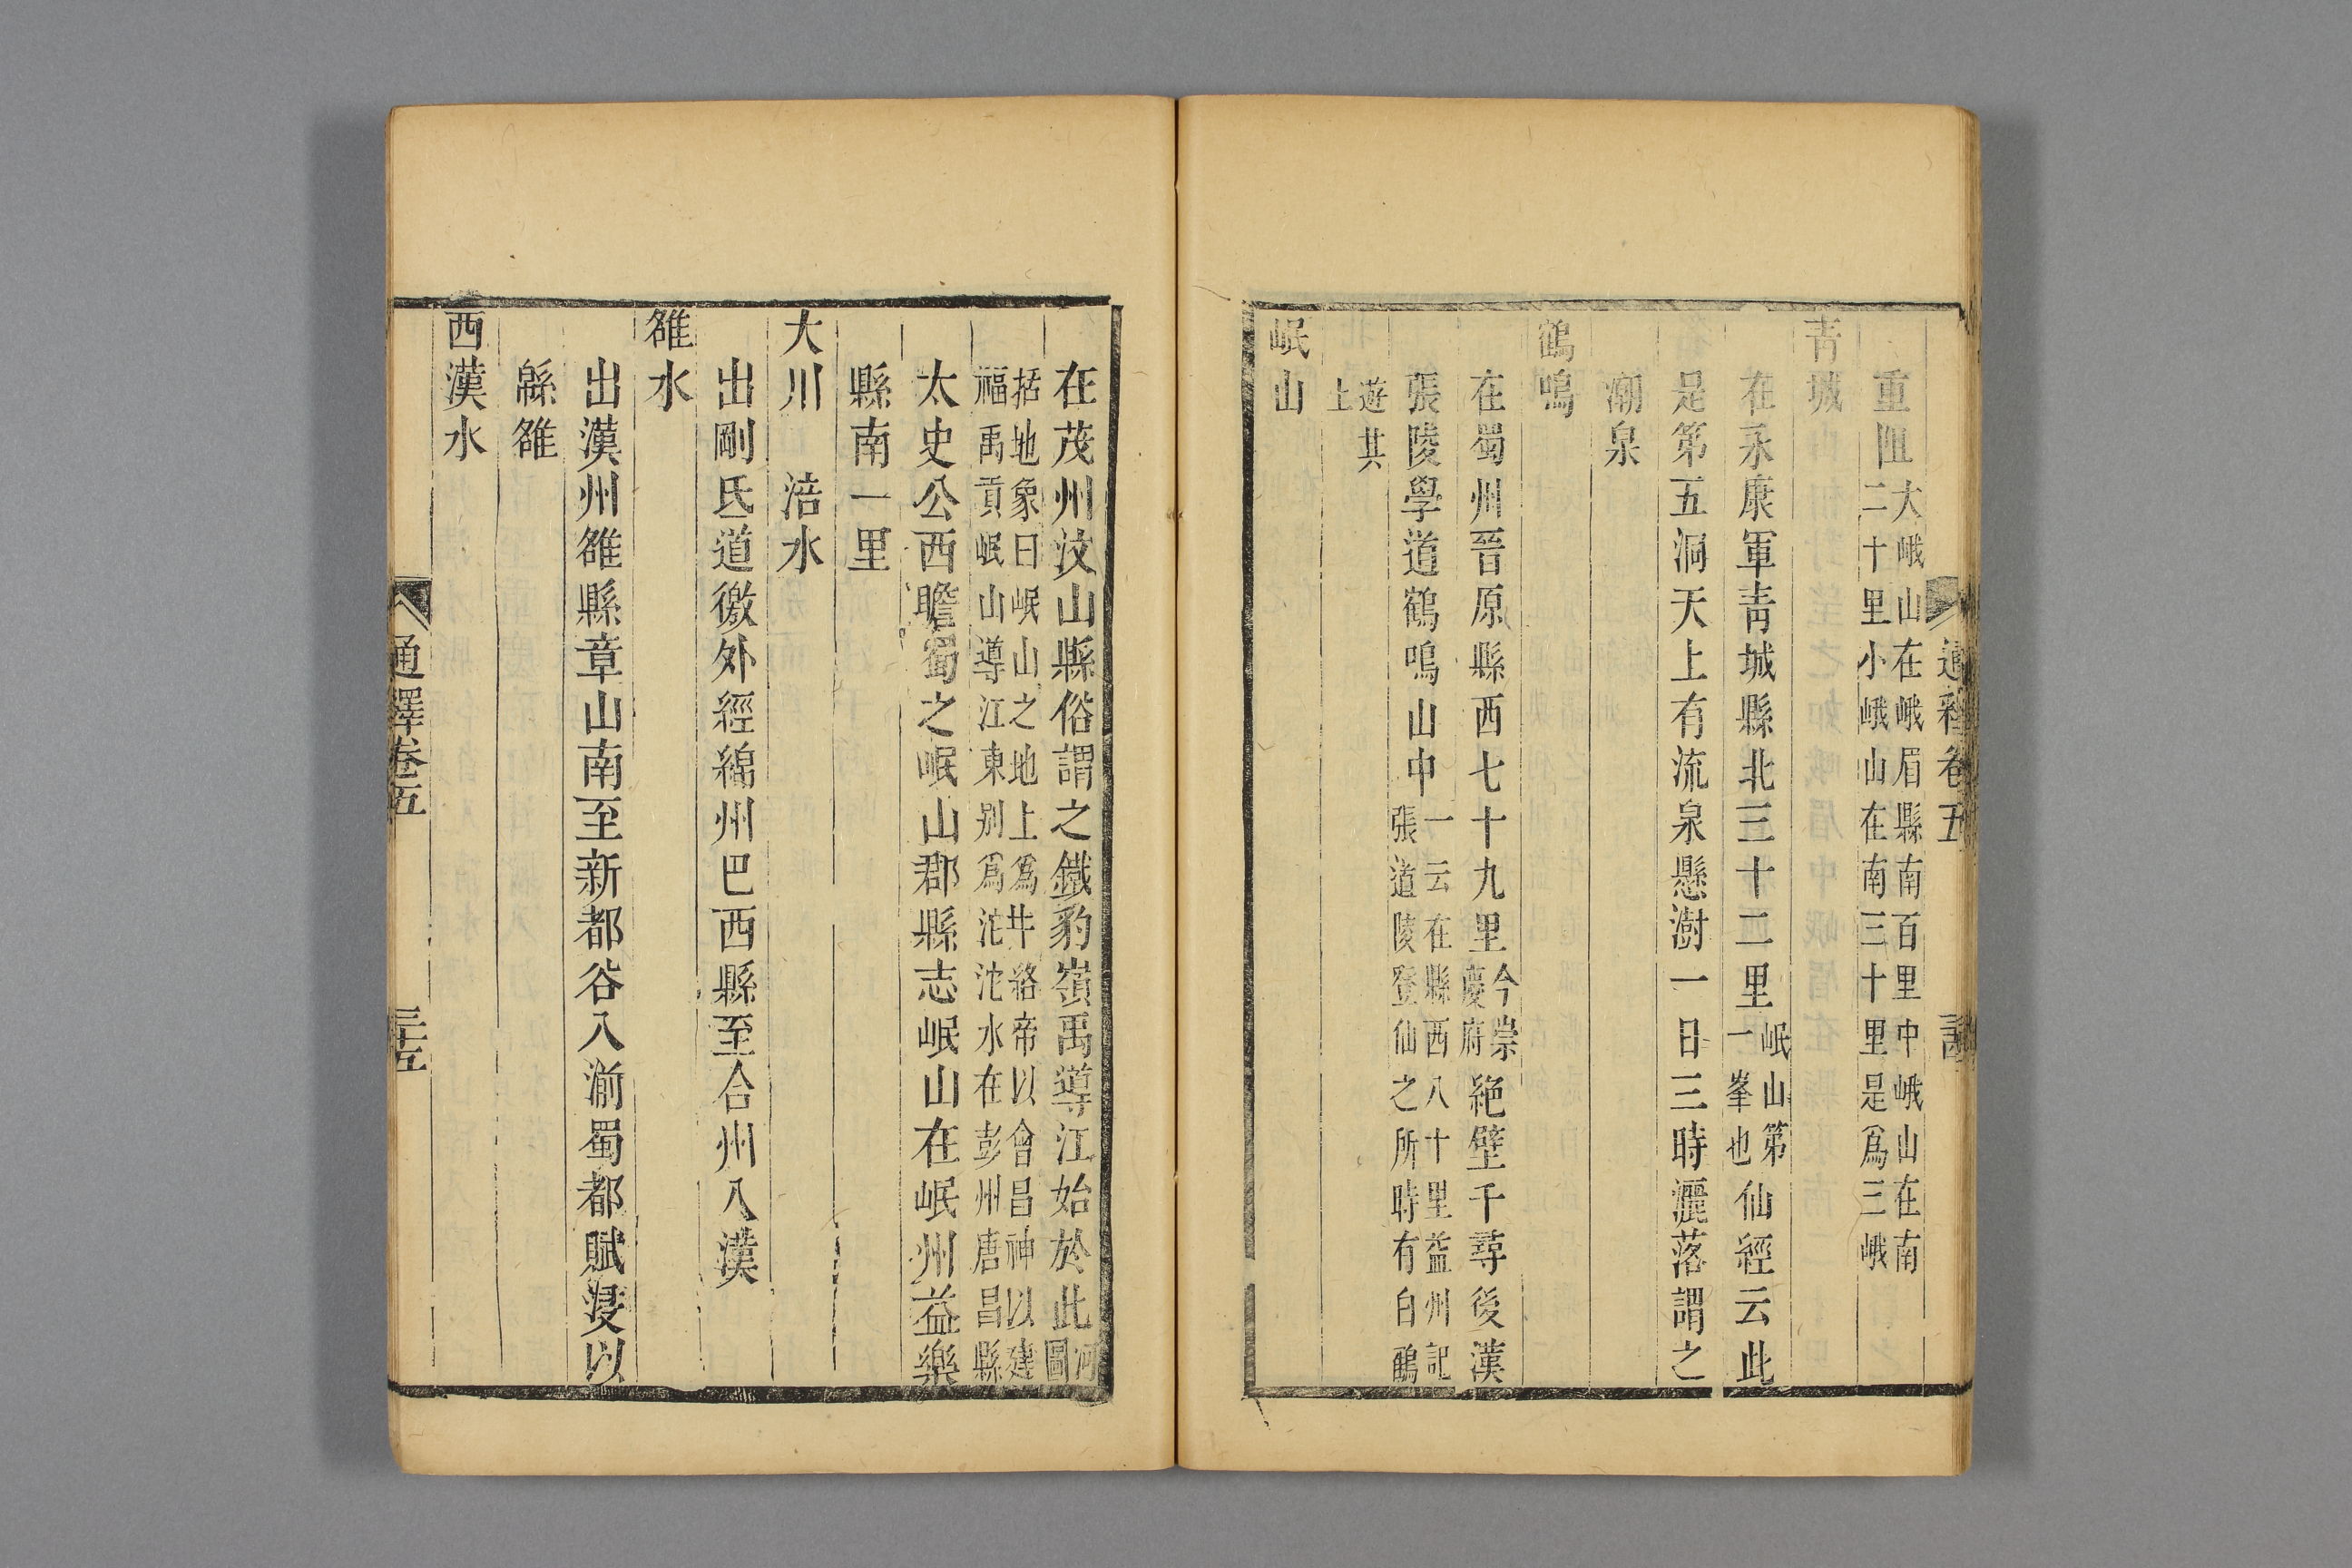 重阻大峨山在峨眉縣南百里中峨山在南
二十里小峨山在南三十里是爲三峨
青城
在永康軍青城縣北三十二里岷山第
一峯也仙經云此
是第五洞天上有流泉懸澍一日三時灑落謂之
潮泉
鶴鳴
在蜀州晉原縣西七十九里今崇
慶府絶壁千尋後漢
張陵學道鶴鳴山中一云在縣西八十里益州記
張道陵登仙之所時有白鶴
遊其
上
岷山
在茂州汶山縣俗謂之鐵豹嶺禹導江始於此河
圖
括地象曰岷山之地上爲井絡帝以會昌神以建
福禹貢岷山導江東别爲沱沱水在彭州唐昌縣
太史公西瞻蜀之岷山郡縣志岷山在岷州益樂
縣南一里
大川　涪水
出剛氐道徼外經綿州巴西縣至合州入漢
雒水
出漢州雒縣章山南至新都谷入湔蜀都賦浸以
緜雒
西漢水
通釋卷五
三五